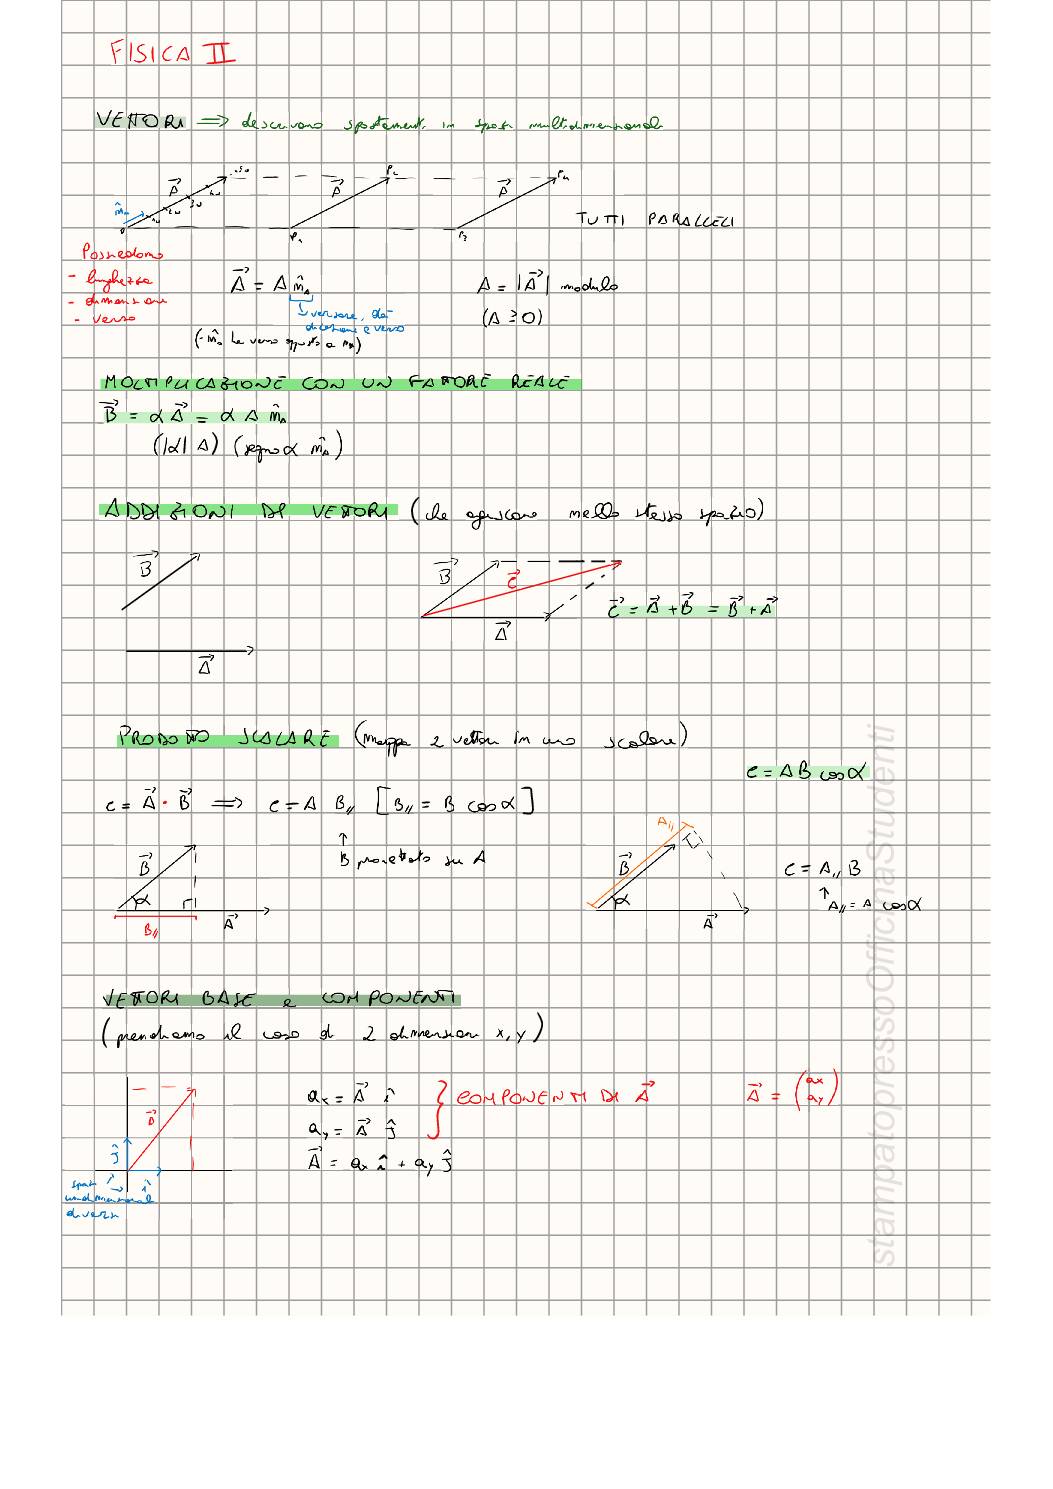 FISICA II
VETTORI ⟹ descrivono spostamenti in spazi multidimensionali
A⃗ A⃗ A⃗
1u 2u 3u 4u
n̂ₐ
P₁ P₂ P₃ P₄
TUTTI PARALLELI
Possiedono
- lunghezza
- dimensione
- verso
A⃗ = A n̂ₐ
A = |A⃗| modulo
↳ versore, dà
direzione e verso
(A ≥ 0)
(-n̂ₐ ha verso opposto a n̂ₐ)
MOLTIPLICAZIONE CON UN FATTORE REALE
B⃗ = α A⃗ = α A n̂ₐ
(|α| A) (segno α n̂ₐ)
ADDIZIONI DI VETTORI (che agiscono nello stesso spazio)
B⃗ B⃗ C⃗
C⃗ = A⃗ + B⃗ = B⃗ + A⃗
A⃗
A⃗
PRODOTTO SCALARE (mappa 2 vettori in uno scalare)
c = A B cos α
c = A⃗ · B⃗ ⟹ c = A B∥ [B∥ = B cos α]
A∥
↑
B proiettato su A
B⃗ α A⃗ B∥
B⃗ α A⃗
c = A∥ B
↑ A∥ = A cos α
VETTORI BASE e COMPONENTI
(prendiamo il caso di 2 dimensioni x, y)
aₓ = A⃗ î } COMPONENTI DI A⃗ A⃗ = (aₓ
a_y = A⃗ ĵ a_y)
A⃗ = aₓ î + a_y ĵ
ĵ
î
spazi
unidimensionali
diversi
stampatopressoOfficinaStudenti